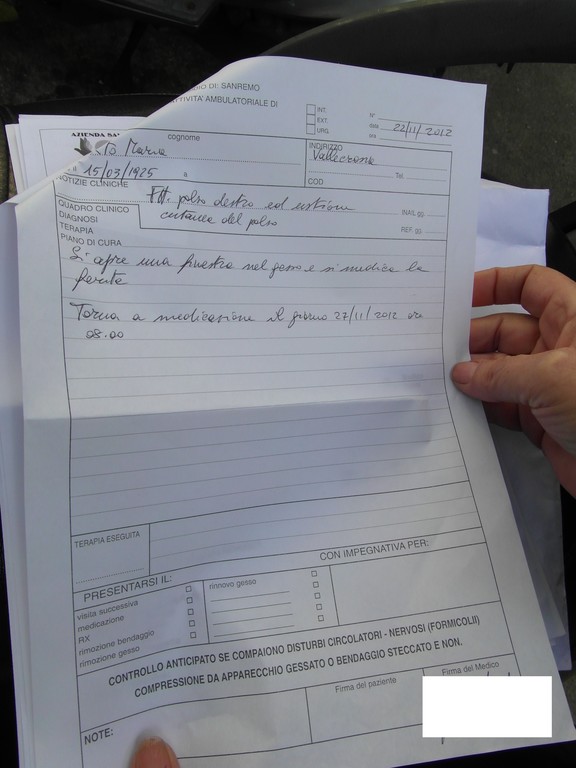 DI: SANREMO
ATTIVITA' AMBULATORIALE DI
INT.
EXT.
URG.
N°
data 22/11/2012
ora
AZIENDA SAN
cognome
Maria
INDIRIZZO
Vallecrosia
15/03/1925 a
Tel.
COD
NOTIZIE CLINICHE
QUADRO CLINICO
DIAGNOSI
TERAPIA
PIANO DI CURA
polso destro ed ustione
cutanea del polso
INAIL gg
REF. gg
Si apre una finestra nel gesso e si medica la
ferita
Torna a medicazione il giorno 27/11/2012 ore
08.00
TERAPIA ESEGUITA
PRESENTARSI IL:
CON IMPEGNATIVA PER:
visita successiva
medicazione
RX
rimozione bendaggio
rimozione gesso
rinnovo gesso
CONTROLLO ANTICIPATO SE COMPAIONO DISTURBI CIRCOLATORI - NERVOSI (FORMICOLI)
COMPRESSIONE DA APPARECCHIO GESSATO O BENDAGGIO STECCATO E NON.
NOTE:
Firma del paziente
Firma del Medico